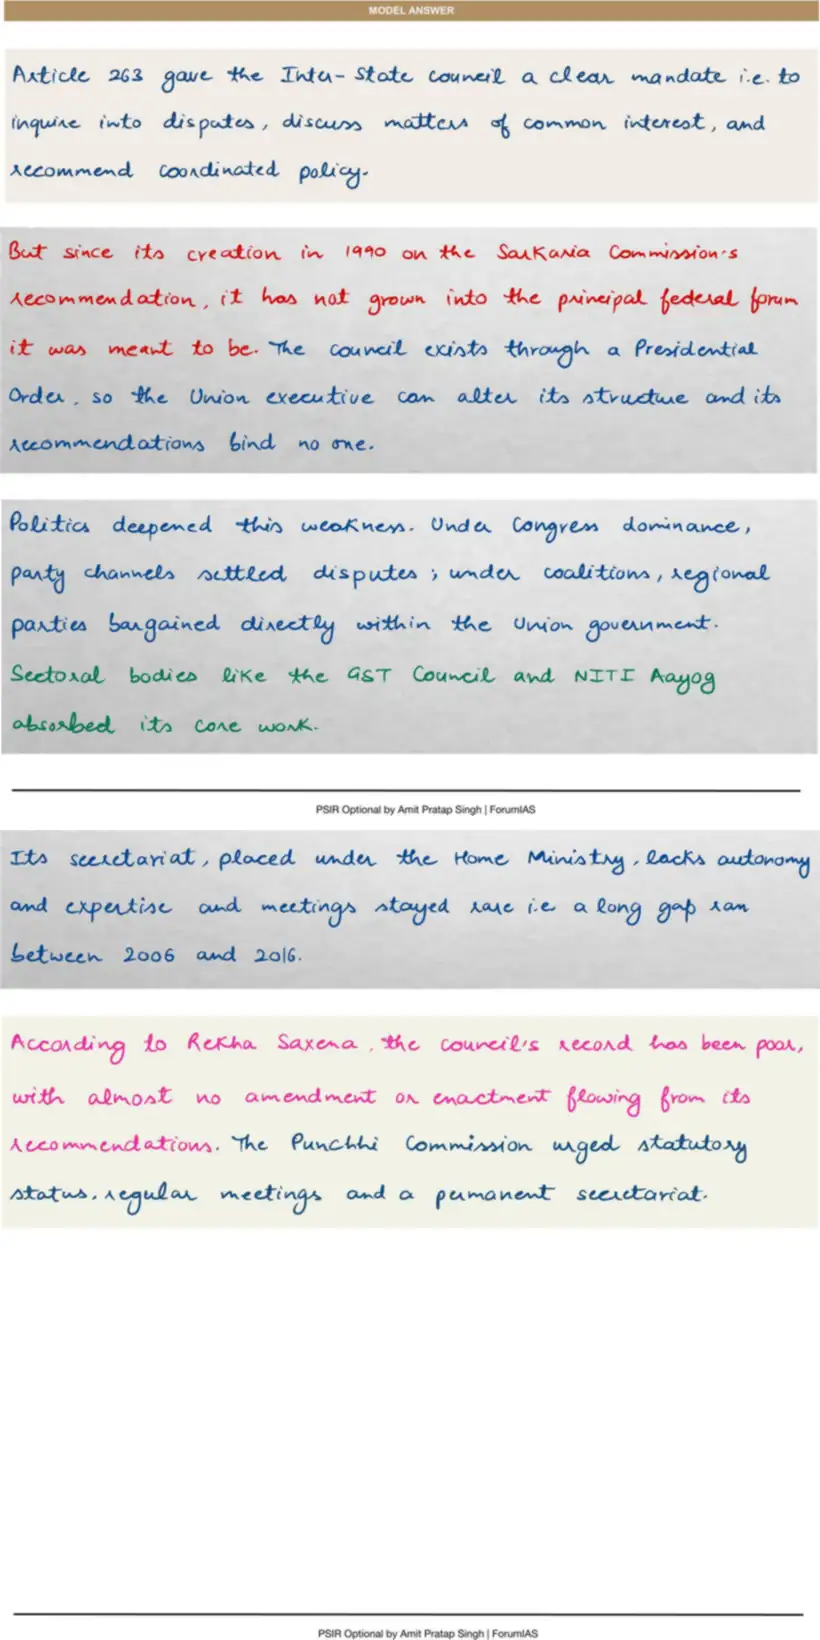 MODEL ANSWER
Article 263 gave the Inter-State council a clear mandate i.e. to
inquire into disputes, discuss matters of common interest, and
recommend coordinated policy.
But since its creation in 1990 on the Sarkaria Commission's
recommendation, it has not grown into the principal federal forum
it was meant to be. The council exists through a Presidential
Order, so the Union executive can alter its structure and its
recommendations bind no one.
Politics deepened this weakness. Under Congress dominance,
party channels settled disputes; under coalitions, regional
parties bargained directly within the Union government.
Sectoral bodies like the GST Council and NITI Aayog
absorbed its core work.
PSIR Optional by Amit Pratap Singh | ForumIAS
Its secretariat, placed under the Home Ministry, lacks autonomy
and expertise and meetings stayed rare i.e a long gap ran
between 2006 and 2016.
According to Rekha Saxena, the council's record has been poor,
with almost no amendment or enactment flowing from its
recommendations. The Punchhi Commission urged statutory
status, regular meetings and a permanent secretariat.
PSIR Optional by Amit Pratap Singh | ForumIAS